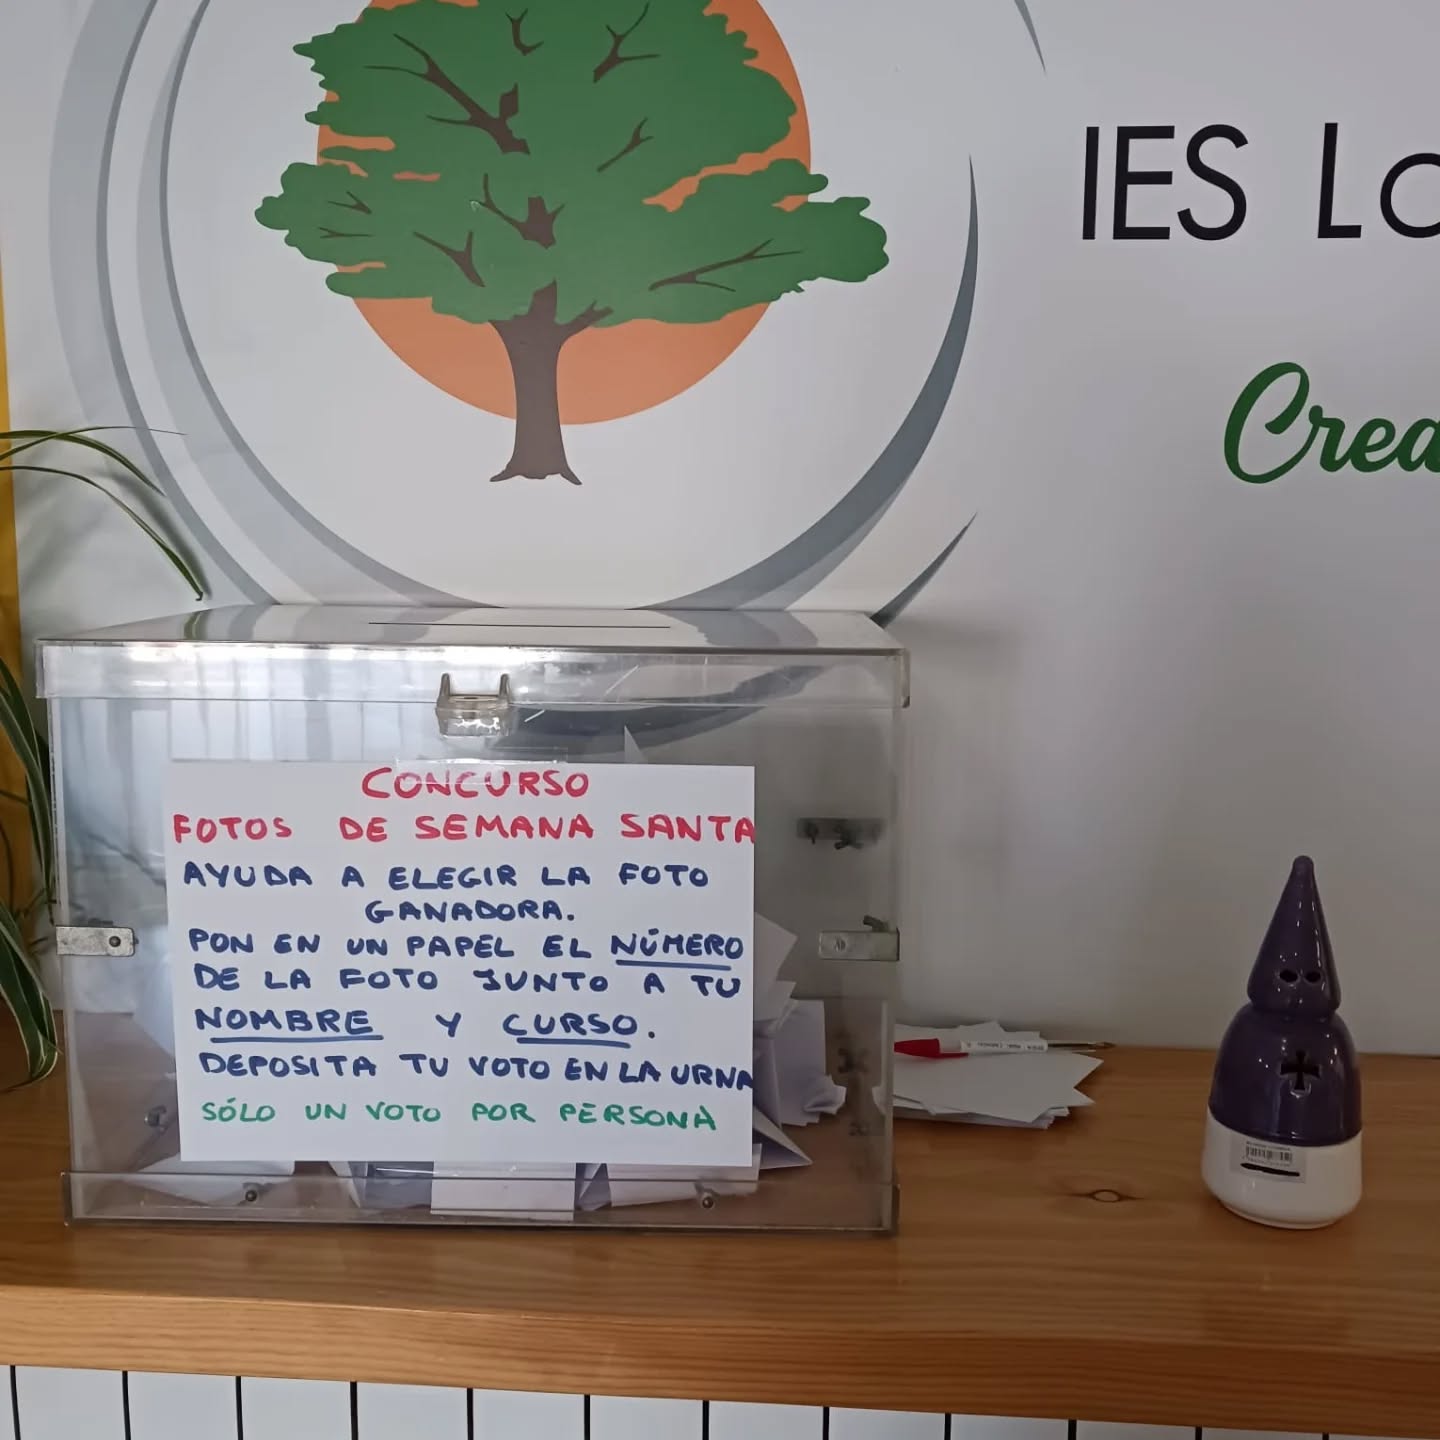 IES Lo
Crea
CONCURSO
FOTOS DE SEMANA SANTA
AYUDA A ELEGIR LA FOTO
GANADORA.
PON EN UN PAPEL EL NÚMERO
DE LA FOTO JUNTO A TU
NOMBRE Y CURSO.
DEPOSITA TU VOTO EN LA URNA
SÓLO UN VOTO POR PERSONA